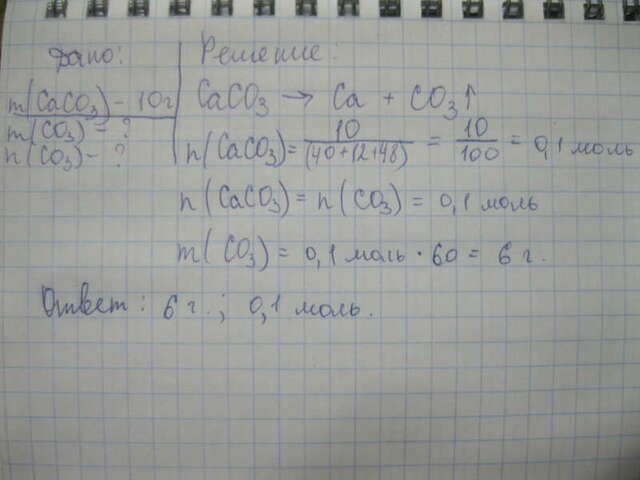 Дано:
m(CaCO3) - 10г
m(CO3) - ?
n(CO3) - ?
Решение:
CaCO3 → Ca + CO3↑
n(CaCO3) = 10/(40+12+48) = 10/100 = 0,1 моль
n(CaCO3) = n(CO3) = 0,1 моль
m(CO3) = 0,1 моль · 60 = 6 г.
Ответ: 6 г.; 0,1 моль.